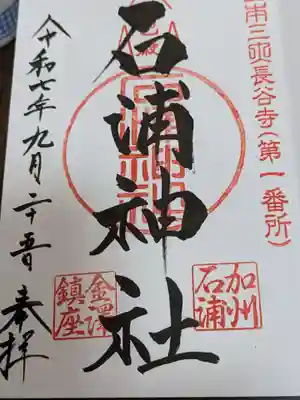 三十三所長谷寺(第一番所)
石浦神社
加州
石浦
金澤
鎮座
令和七年九月二十五日
奉拝